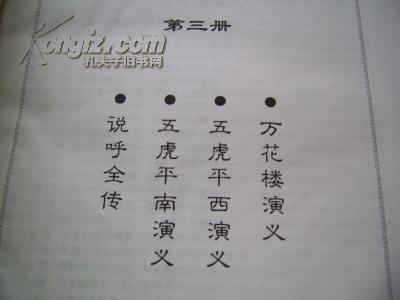 Kongfz.com
孔夫子旧书网
第三册
●万花楼演义
●五虎平西演义
●五虎平南演义
●说呼全传